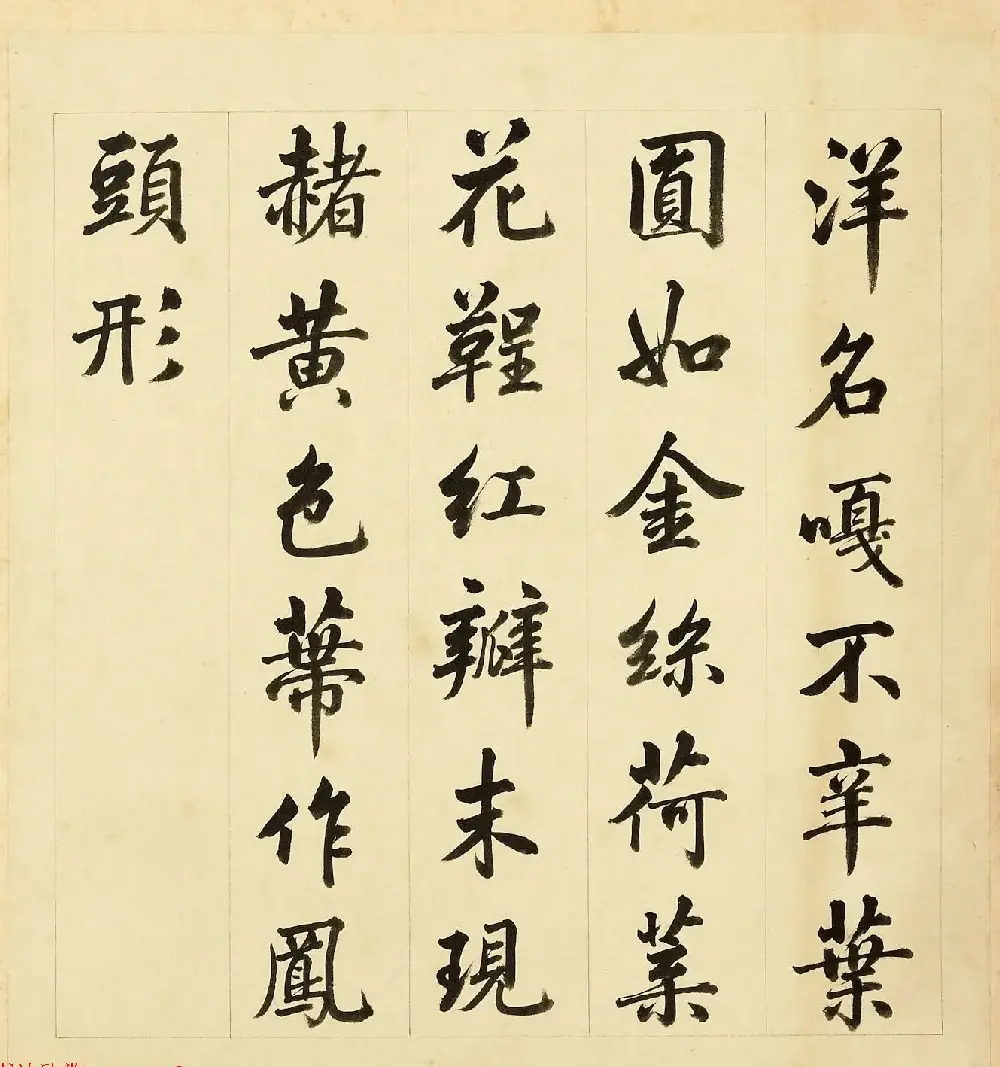 洋名嘎不辛葉
圓如金絲荷葉
花鞓红瓣末現
赭黄色蔕作鳳
頭形